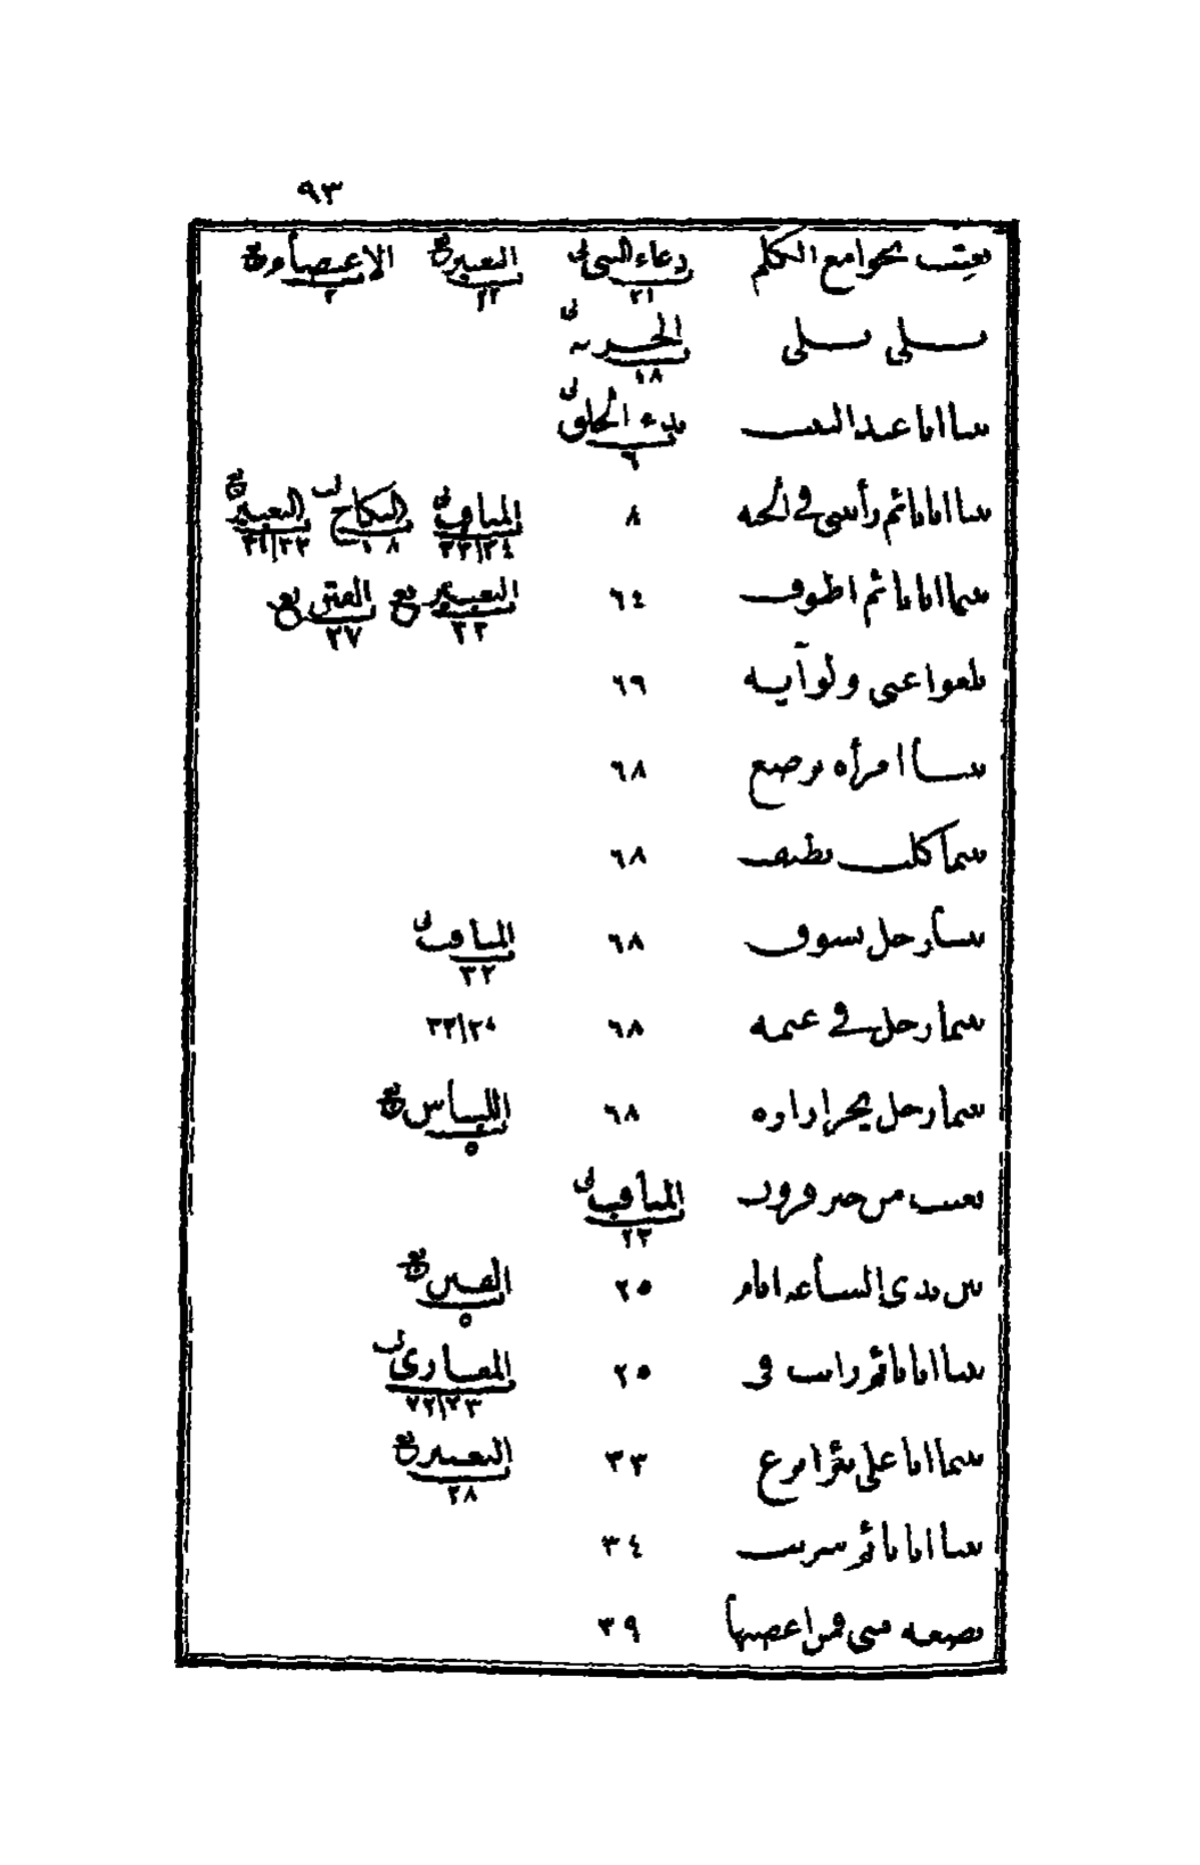 ٩٣
بعثت بجوامع الكلم دعاء النبي التعبير الاعتصام
٢١ ٢٢ ٢
بلى بلى الجزية
١٨
بينا انا عند البيت بدء الخلق
٦
بينا انا نائم رأيتني في الجنة ٨ المناقب النكاح التعبير
٣٣/٣٤ ١٠٨ ٣١/٣٢
بينما انا نائم اطوف ٦٤ التعبير الفتن
٣٣ ٢٧
بلغوا عني ولو آية ٦٩
بينا امرأة ترضع ٦٨
بينما كلب يطيف ٦٨
بينا رجل يسوق ٦٨ المناقب
٣٢
بينما رجل في غنمه ٦٨ ٣٣/٣٤
بينما رجل يجر ازاره ٦٨ اللباس
٥
بعثت من خير قرون المناقب
٢٣
بين يدي الساعة ايام ٢٥ الفتن
٥
بينا انا نائم رايت في ٢٥ المغازي
٧٢/٧٣
بينما انا على بئر انزع ٣٣ التعبير
٢٨
بينا انا نائم شربت ٣٤
بضعة مني فمن اغضبها ٣٩